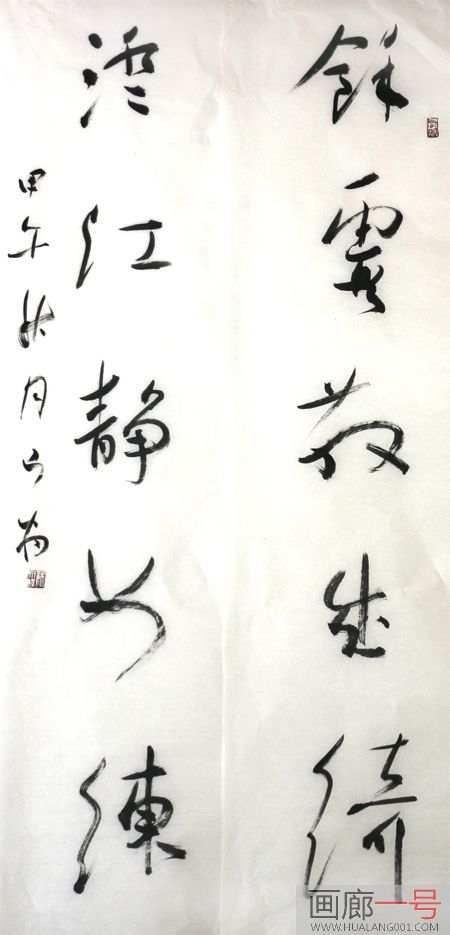 餘霞散成綺
澄江靜如練
甲午秋月
画廊一号
WWW.HUALANG001.COM